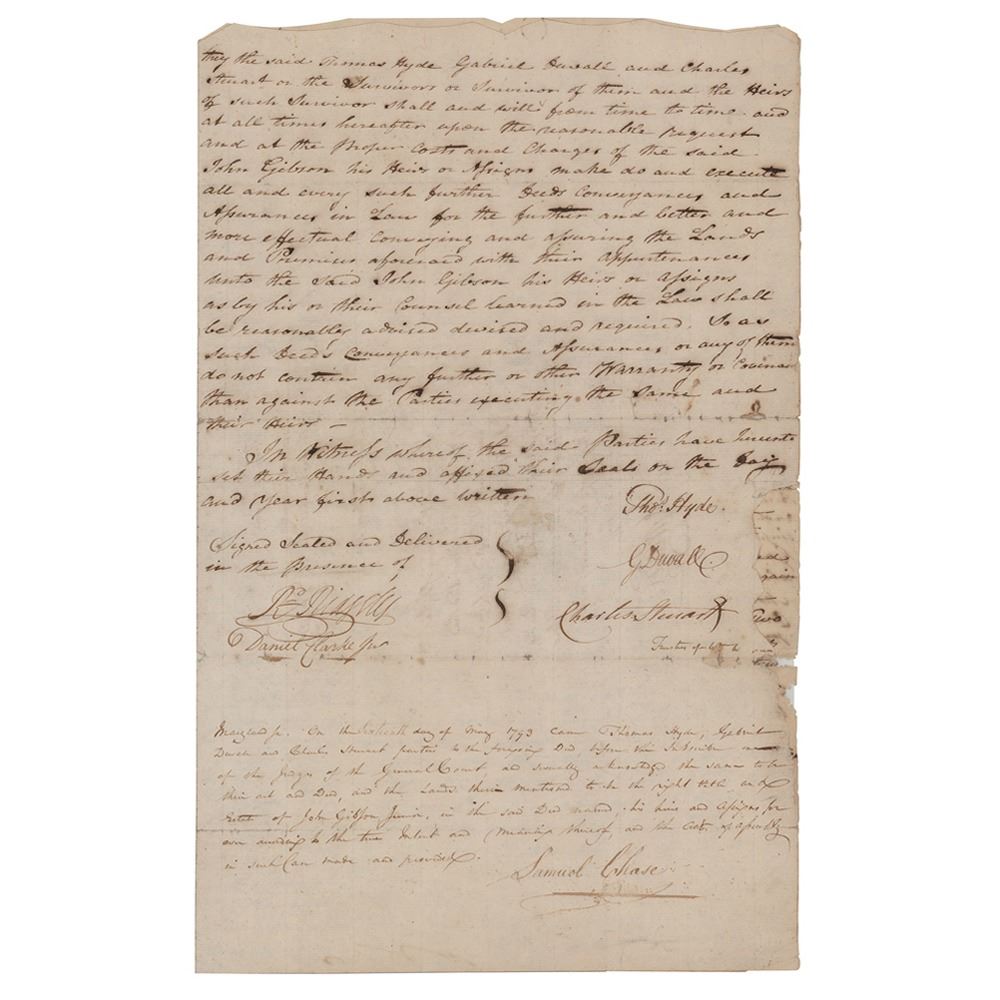 they the said Thomas Hyde Gabriel Duvall and Charles
Steuart or the Survivors or Survivor of them and the Heirs
of such Survivor shall and will from time to time and
at all times hereafter upon the reasonable request
and at the Proper Costs and Charges of the said
John Gibson his Heirs or Assigns make do and execute
all and every such further Deeds Conveyances and
Assurances in Law for the further and better and
more effectual Conveying and assuring the Lands
and Premises aforesaid with their appurtenances
unto the said John Gibson his Heirs or assigns
as by his or their Counsel learned in the Law shall
be reasonably advised devised and required. So as
such Deeds Conveyances and Assurances or any of them
do not contain any further or other Warranty or Covenant
than against the Parties executing the Same and
their Heirs –
In Witness whereof the said Parties have hereunto
set their Hands and affixed their Seals on the Day
and Year first above Written
Thos. Hyde.
Signed Sealed and Delivered
in the Presence of
G Duvall
Charles Steuart
Daniel Clarke Jur
Trustees
Two
Maryland ss. On the Sixteenth day of May 1793 came Thomas Hyde, Gabriel
Duvall and Charles Steuart parties to the foregoing Deed before the Subscriber one
of the Judges of the General Court, and severally acknowledged the same to be
their act and Deed, and the Lands therein mentioned to be the right title and
Estate of John Gibson Junior, in the said Deed named, his heirs and Assigns for
ever according to the true Intent and Meaning thereof, and the Acts of Assembly
in such Case made and provided.
Samuel Chase